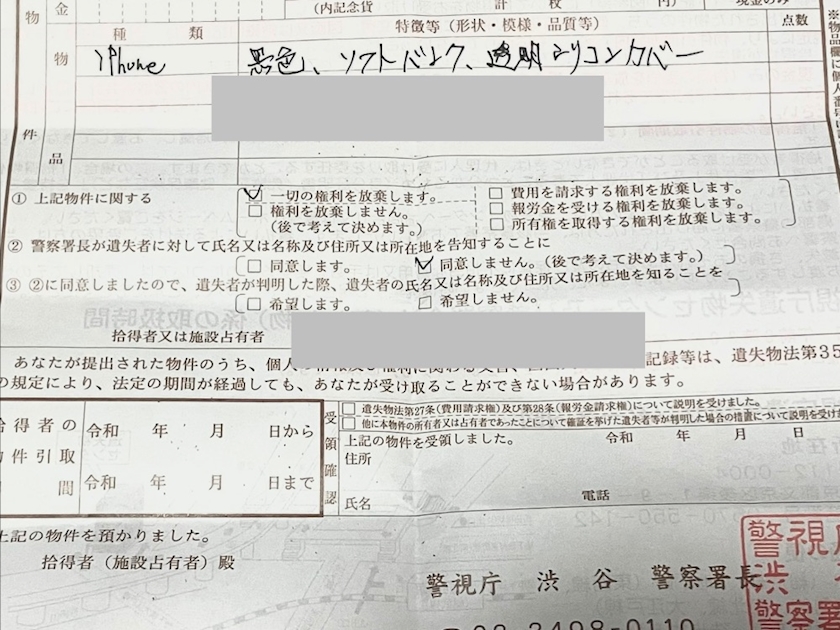 物 金
(内記念貨 計 枚 円) 現金のみ
種 類 特徴等(形状・模様・品質等) 点数
物 iPhone 黒色、ソフトバンク、透明シリコンカバー
件
品
※物品欄に個人番号
① 上記物件に関する ☑ 一切の権利を放棄します。 □ 費用を請求する権利を放棄します。
□ 権利を放棄しません。 □ 報労金を受ける権利を放棄します。
(後で考えて決めます。) □ 所有権を取得する権利を放棄します。
② 警察署長が遺失者に対して氏名又は名称及び住所又は所在地を告知することに
□ 同意します。 ☑ 同意しません。(後で考えて決めます。)
③ ②に同意しましたので、遺失者が判明した際、遺失者の氏名又は名称及び住所又は所在地を知ることを
□ 希望します。 □ 希望しません。
拾得者又は施設占有者
あなたが提出された物件のうち、個人 記録等は、遺失物法第35
の規定により、法定の期間が経過しても、あなたが受け取ることができない場合があります。
拾得者の 令和 年 月 日から
物件引取
期間 令和 年 月 日まで
受領確認
□ 遺失物法第27条(費用請求権)及び第28条(報労金請求権)について説明を受けました。
□ 他に本物件の所有者又は占有者であったことについて確証を挙げた遺失者等が判明した場合の措置について説明を受け
上記の物件を受領しました。 令和 年 月 日
住所
氏名 電話
上記の物件を預かりました。
拾得者(施設占有者)殿
警視庁 渋谷 警察署長
警視庁渋
警察署
03-3498-0110